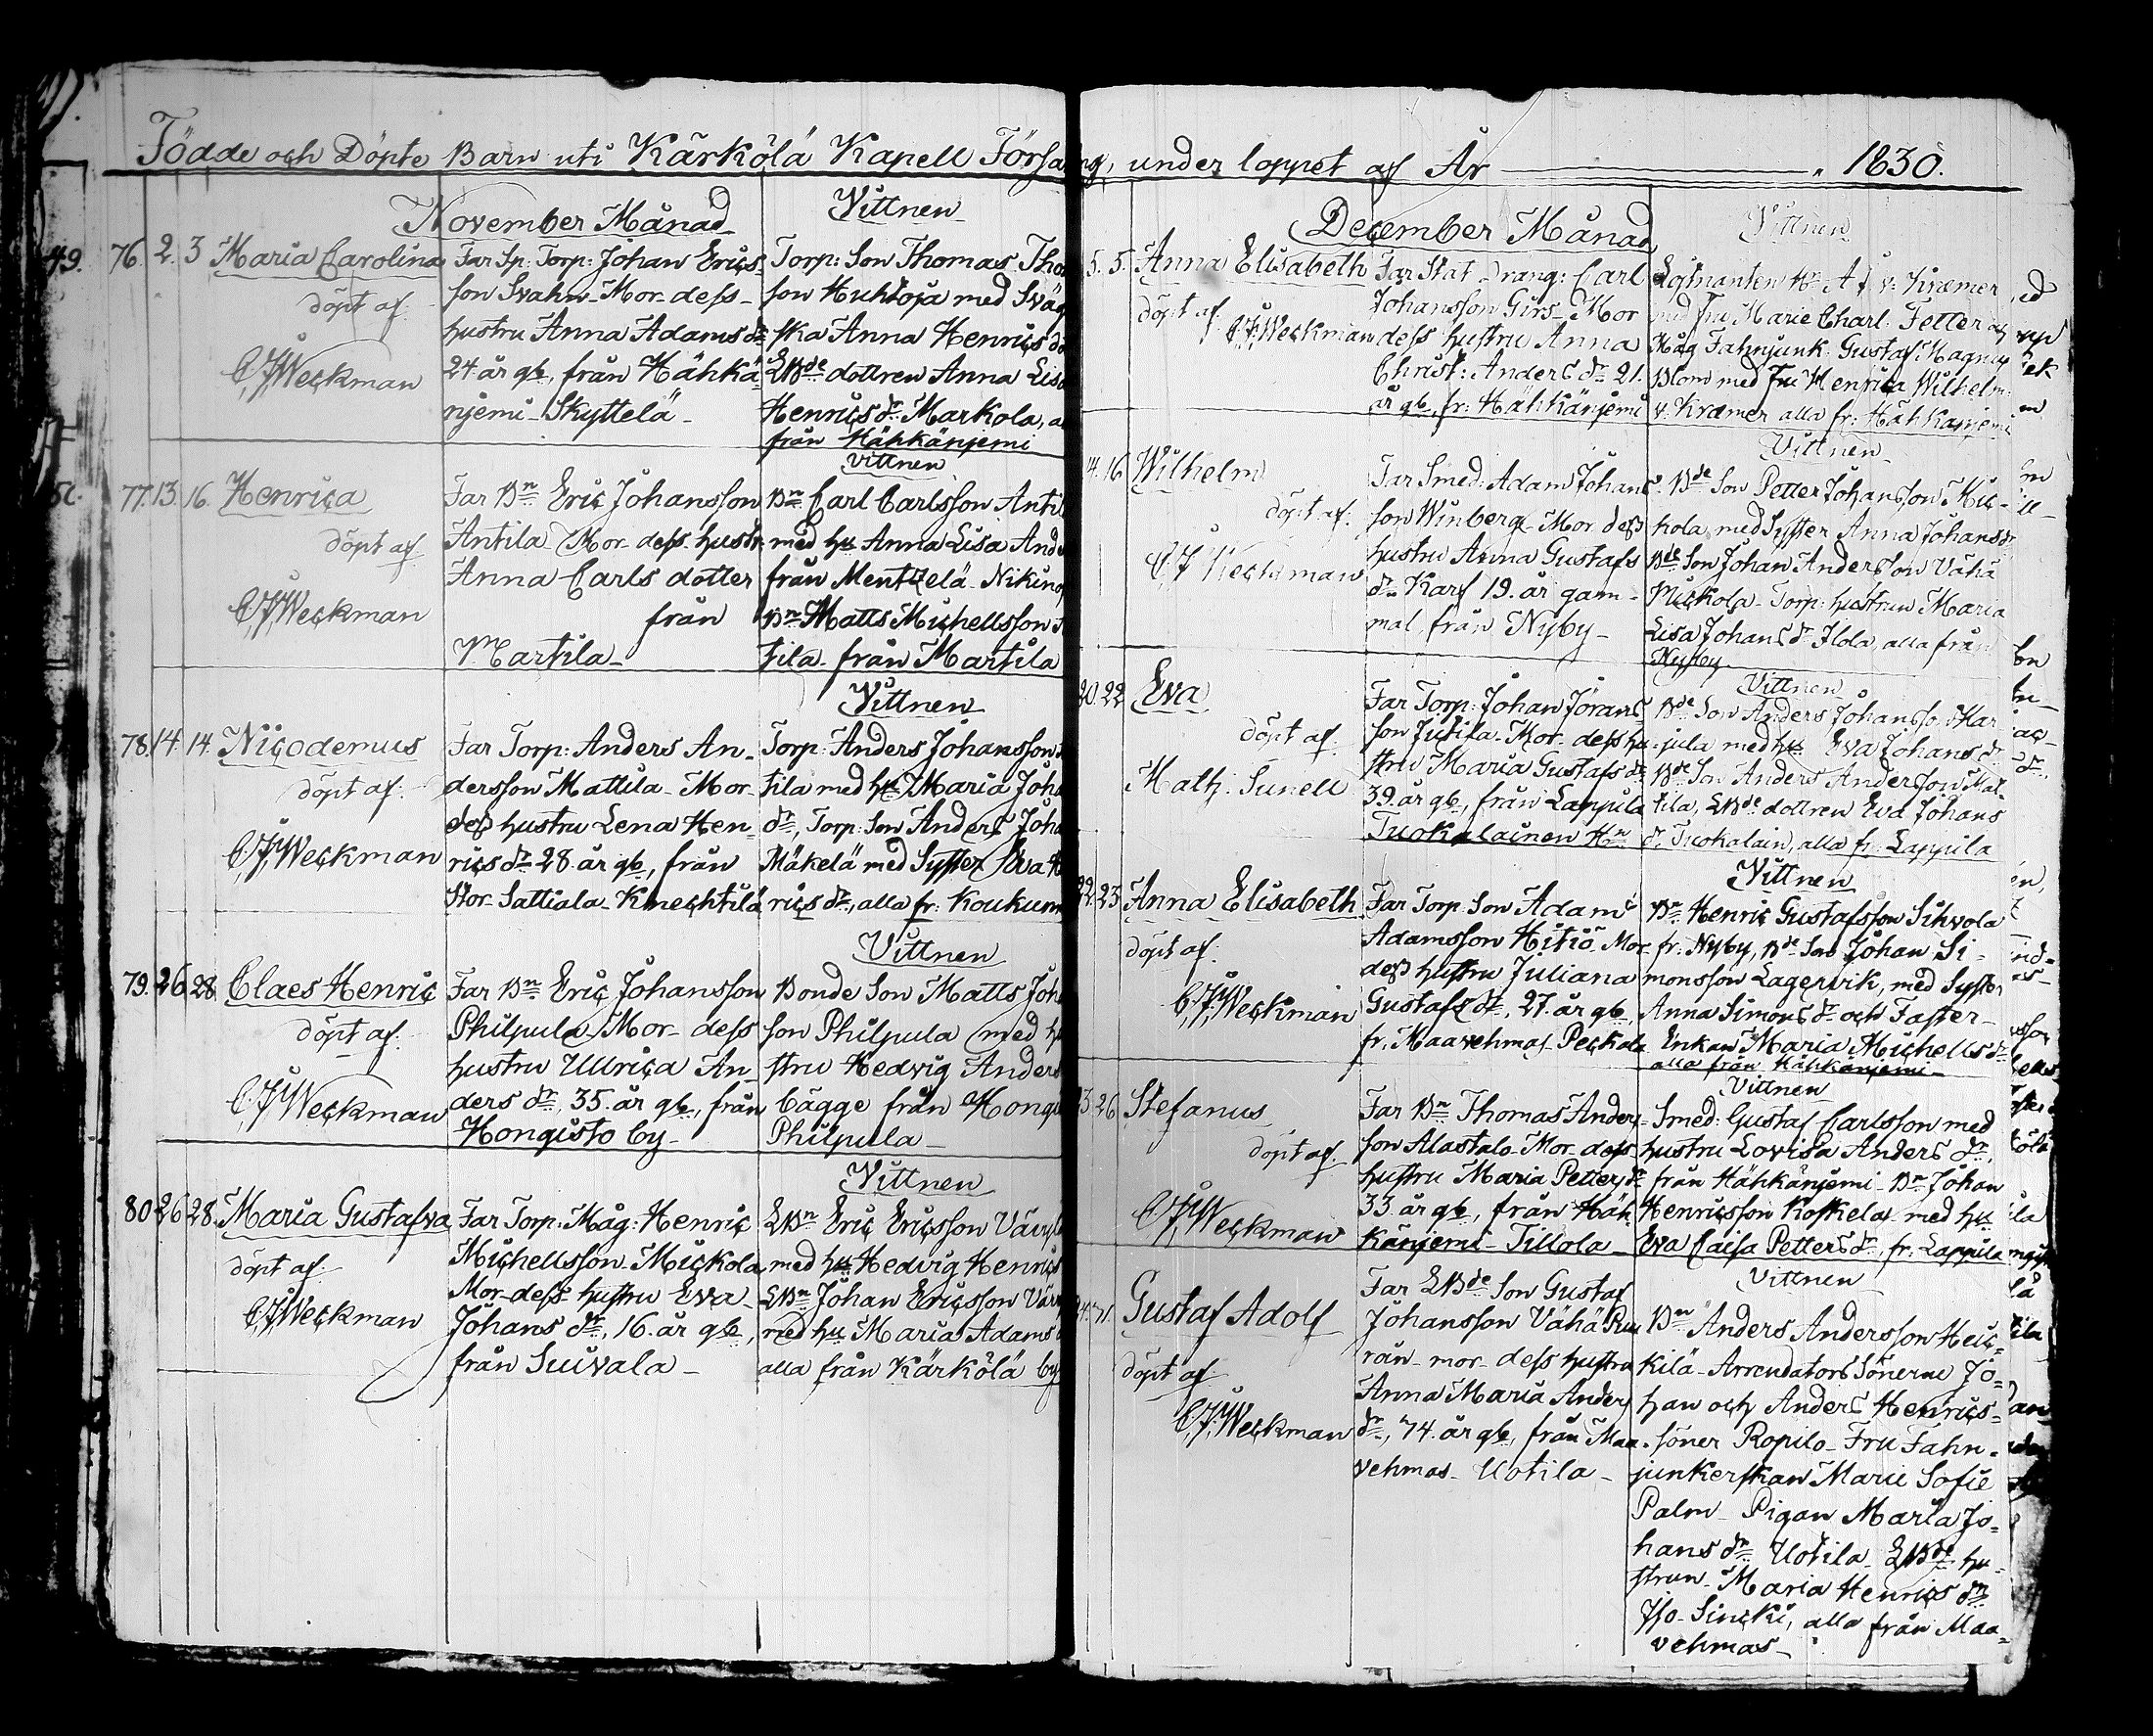 Födde och Döpte Barn uti Kärkölä Kapell Försa
November Månad
Vittnen
49. 76. 2. 3 Maria Carolina
döpt af
C,J,Weckman
Far Sp: Torp: Johan Erics-
son Svahn- Mor- dess-
hustru Anna Adams dr
24 år gl, från Hähkä-
njemi- Skyttelä-
Torp: Son Thomas Tho
son Huhtoja med Sväg
ska Anna Henrics do
LBde dottren Anna Lisa
Henrics dr Markola, a
från Hähkänjemi
Vittnen
77. 13. 16. Henrica
döpt af
C,J,Weckman
Far Bn Eric Johansson
Antila Mor- dess hustr
Anna Carls dotter
från
Martila-
Bn Carl Carlsson Antil
med hu Anna Lisa And
från Mentzelä- Nikino
Bn Matts Michellsson
tila- från Martila
Vittnen
78. 14. 14. Nicodemus
döpt af:
C,J,Weckman
Far Torp: Anders An-
dersson Mattila- Mor-
dess hustru Lena Hen-
rics dr 28. år gl, från
Stor- Sattiala- Knechtilä
Torp: Anders Johansson
tila med hu Maria Joha
dr, Torp: Son Anders Joha
Mäkelä med Syster Eva H
rics dr, alla fr: Koukunn
Vittnen
79. 26. 28. Claes Henric
döpt af:
C,J,Weckman
Far Bn Eric Johansson
Philpula- Mor- dess
hustru Ullrica An-
ders dr, 35. år gl, från
Hongisto by-
Bonde Son Matts Joh
son Philpula med hu
stru Hedvig Anders
bägge från Hongi
Philpula-
Vittnen
80. 26. 28. Maria Gustafva
döpt af
C,J,Weckman
Far Torp: Måg: Henric
Michellsson- Mickola
Mor- dess hustru Eva-
Johans dr, 16. år gl,
från Suivala-
LBn Eric Ericsson Värr
med hu Hedvig Henrics
LBn Johan Ericsson Vär
med hu Maria Adams
alla från Kärkölä by
ng, under loppet af År 1830.
December Månad
Vittnen
5. 5. Anna Elisabeth
döpt af
C,J,Weckman
Far Stat- Dräng: Carl
Johansson Girs- Mor
dess hustru Anna
Christ: Anders dr 21.
år gl, fr: Hähkänjemi
Löjtnanten Hr A F v: Kræmer
med Fru Marie Charl: Fetter
Måg Fahnjunk: Gustaf Magnus
Blom med Fru Henrica Wilhelm:
v: Kræmer alla fr: Hähkänjemi
Vittnen
14. 16 Wilhelm
döpt af:
C,J Weckman
Far Smed: Adam Johans
son Winberg- Mor dess
hustru Anna Gustafs
dr Karf 19. år gam-
mal, från Nyby-
Bde Son Petter Johansson Mic-
kola, med Syster Anna Johans dr
Bde Son Johan Andersson Vähä
Mickola- Torp: hustrun Maria
Lisa Johans dr Ilola, alla från
Nyby-
Vittnen
20. 22 Eva
döpt af
Math: Sunell
Far Torp: Johan Jörans
son Jutila- Mor- dess hu-
stru Maria Gustafs dr
39. år gl, från Lappila
Tuokalainen Hn
Bde Son Anders Johansson Har
jula med hu Eva Johans dr
Bde Son Anders Andersson Mat
tila, LBde dottren Eva Johans
dr Tuokalain, alla fr: Lappila
Vittnen
22. 23 Anna Elisabeth
döpt af:
C,J,Weckman
Far Torp: Son Adam
Adamsson Hitiö- Mor-
dess hustru Juliana
Gustafs dr, 27. år gl,
fr: Maavehmas- Peckola
Bn Henric Gustafsson Sihvola
fr: Nyby, Bde Son Johan Si-
monsson Lagervik, med Syster
Anna Simons dr och Faster-
Enkan Maria Michells dr
alla från Hähkänjemi-
Vittnen
23. 26 Stefanus
döpt af:
C,J,Weckman
Far Bn Thomas Anders-
son Alastalo- Mor- dess
hustru Maria Petters dr
33 år gl, från Häh-
känjemi- Tillola-
Smed: Gustaf Carlsson med
hustru Lovisa Anders dr,
från Hähkänjemi- Bn Johan
Henricsson Koskela- med hu
Eva Caisa Petters dr, fr: Lappila
Vittnen
Gustaf Adolf
döpt af
C,J,Weckman
Far LBde Son Gustaf
Johansson Vähä Ruu
rån- mor- dess hustru
Anna Maria Anders
dr, 74. år gl, från Maa-
vehmas- Uotila-
Bn Anders Andersson Heic-
kilä- Arrendators Sönerne Jo-
han och Anders Henrics-
söner Ropilo- Fru Fahn-
junkerskan Marie Sofie
Palm- Pigan Maria Jo-
hans dr Uotila- LBde hu-
strun- Maria Henrics dr
Iso- Sincki, alla från Maa-
vehmas-